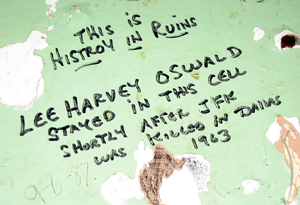 THIS IS
HISTROY IN RUINS
LEE HARVEY OSWALD
STAYED IN THIS CELL
SHORTLY AFTER JFK
WAS KILLED IN DALLAS
1963